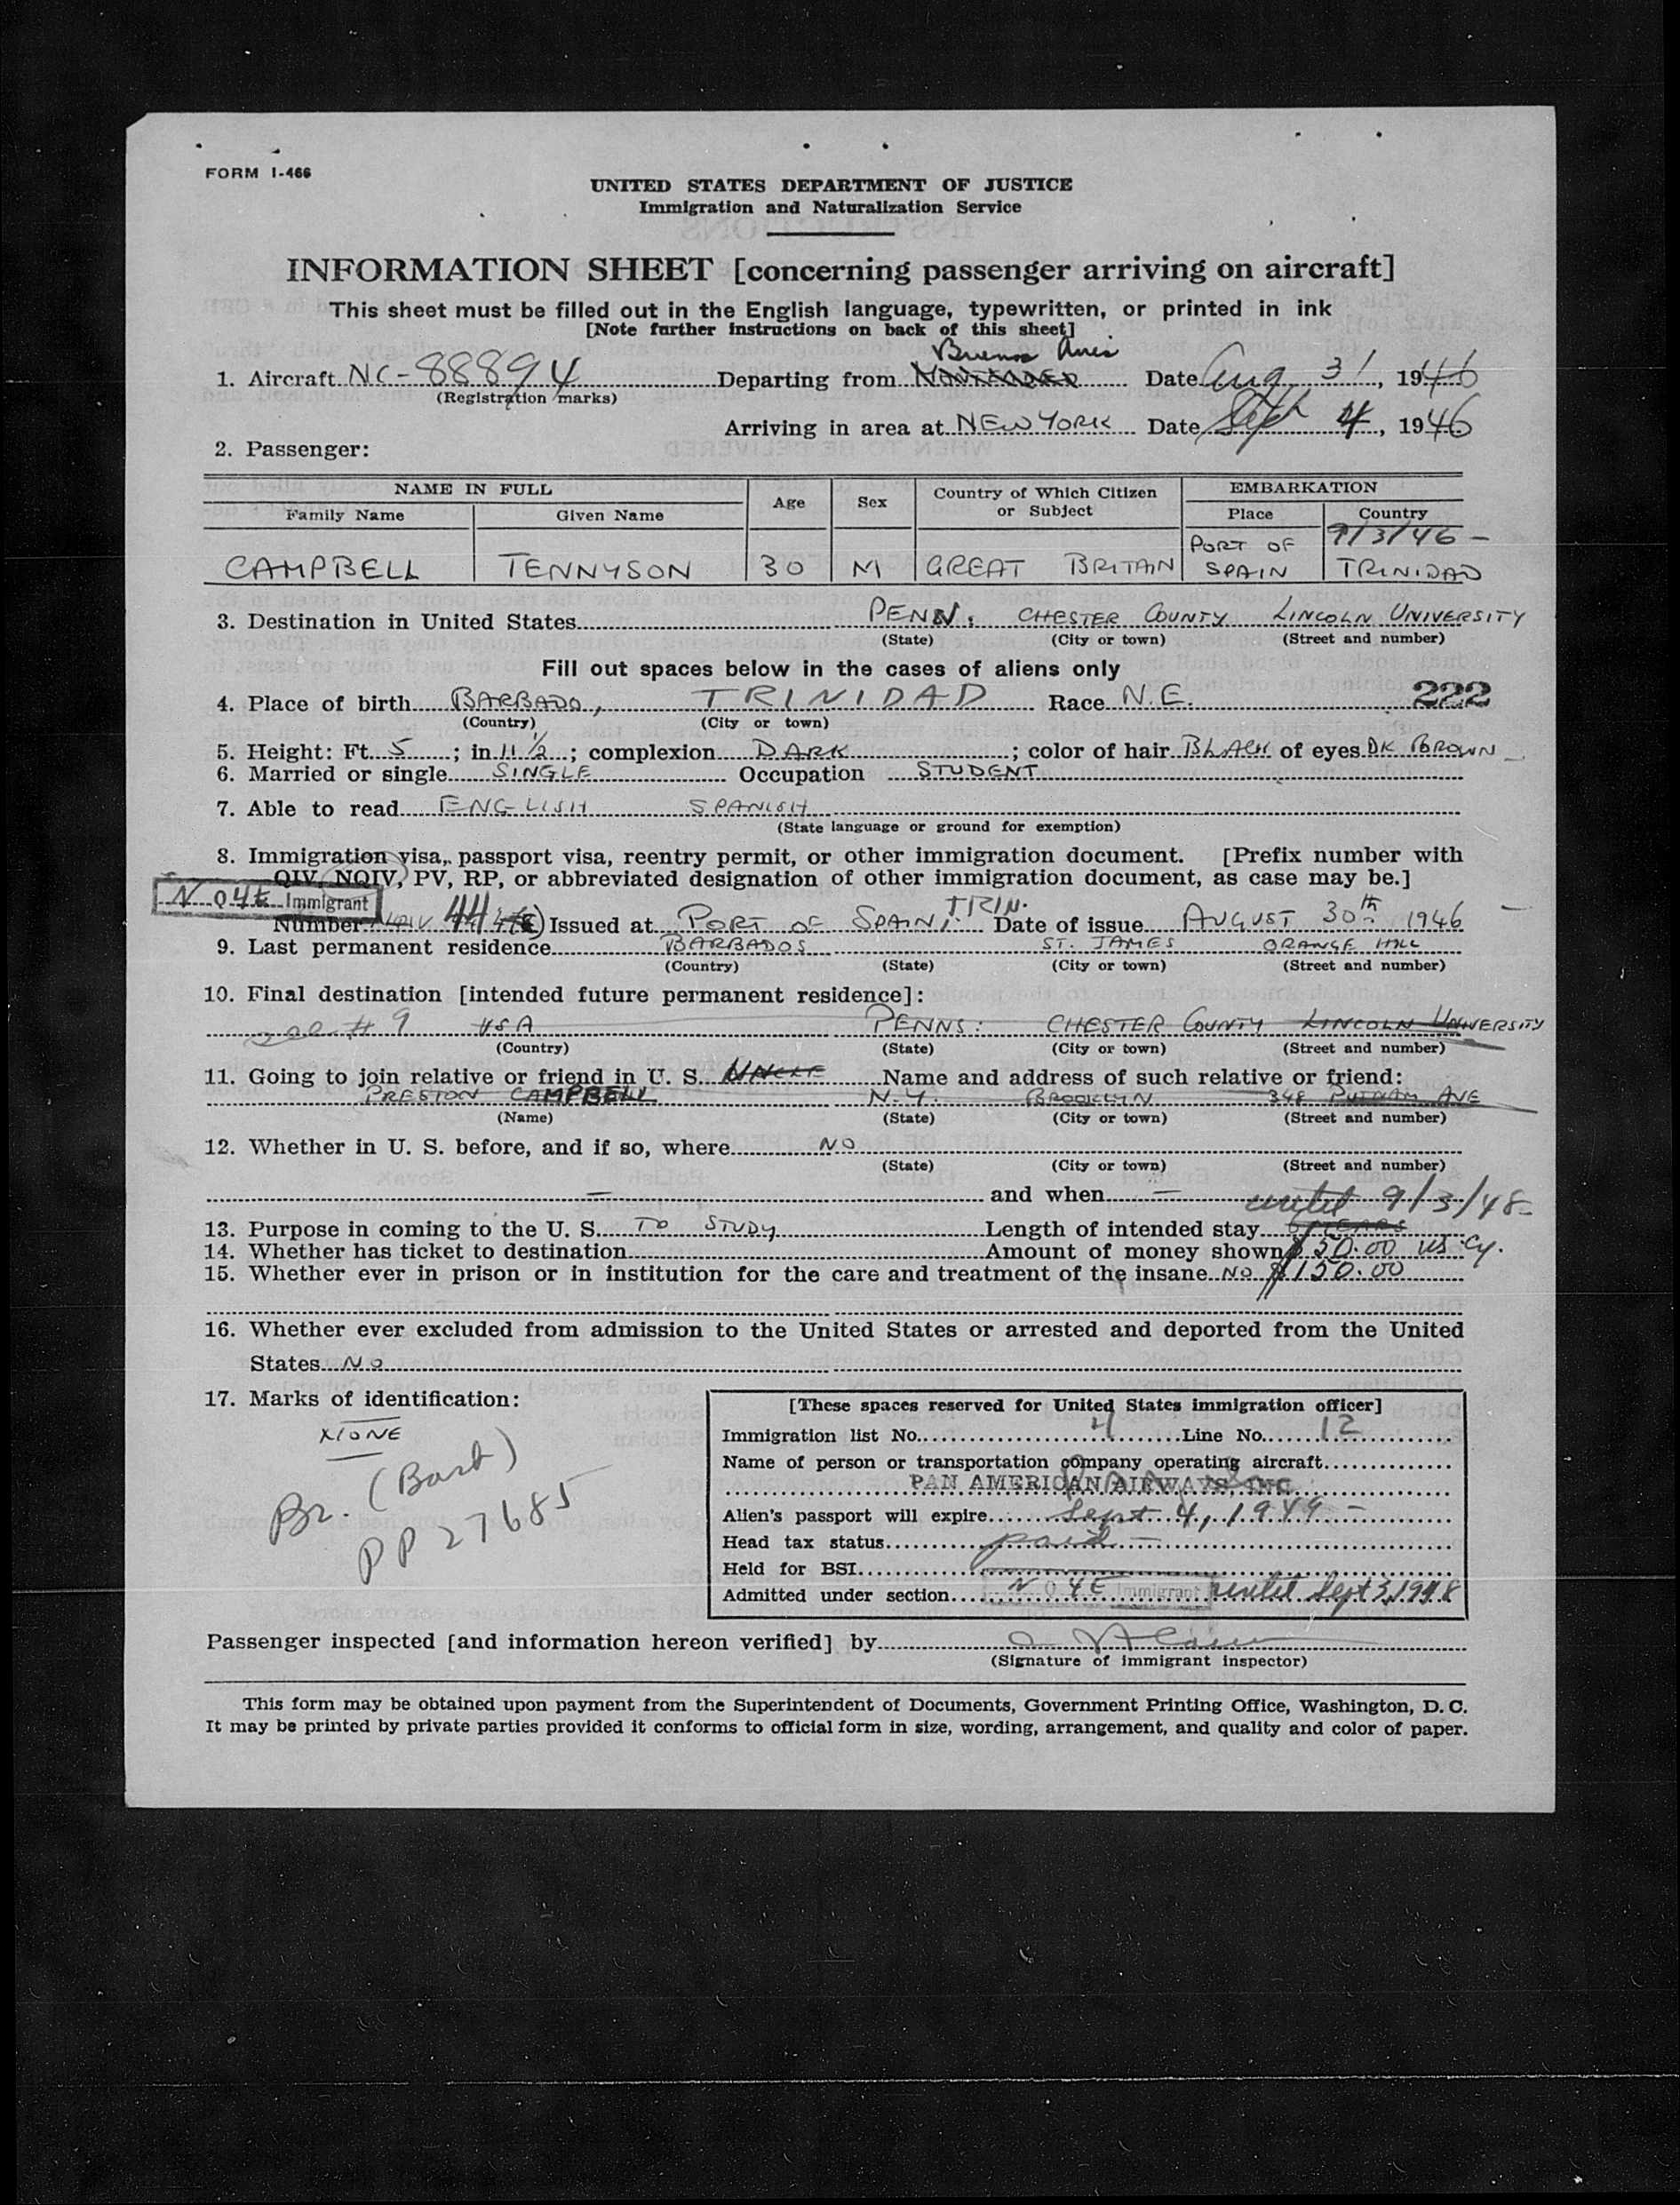 FORM I-466
UNITED STATES DEPARTMENT OF JUSTICE
Immigration and Naturalization Service
INFORMATION SHEET [concerning passenger arriving on aircraft]
This sheet must be filled out in the English language, typewritten, or printed in ink
[Note further instructions on back of this sheet]
Buenos Aires
1. Aircraft NC-88894 Departing from Date Aug 31, 1946
(Registration marks)
Arriving in area at NEW YORK Date Sept 4, 1946
2. Passenger:
NAME IN FULL Age Sex Country of Which Citizen or Subject EMBARKATION
Family Name Given Name Place Country
9/3/46 -
CAMPBELL TENNYSON 30 M GREAT BRITAIN PORT OF SPAIN TRINIDAD
3. Destination in United States PENN, CHESTER COUNTY LINCOLN UNIVERSITY
(State) (City or town) (Street and number)
Fill out spaces below in the cases of aliens only
4. Place of birth BARBADO, TRINIDAD Race N.E. 222
(Country) (City or town)
5. Height: Ft. 5 ; in 11 1/2 ; complexion DARK ; color of hair BLACK of eyes DK BROWN
6. Married or single SINGLE Occupation STUDENT
7. Able to read ENGLISH SPANISH
(State language or ground for exemption)
8. Immigration visa, passport visa, reentry permit, or other immigration document. [Prefix number with
QIV, NQIV, PV, RP, or abbreviated designation of other immigration document, as case may be.]
N O 4E Immigrant
Number 44 Issued at PORT OF SPAIN, TRIN. Date of issue AUGUST 30th 1946
9. Last permanent residence BARBADOS ST. JAMES ORANGE HILL
(Country) (State) (City or town) (Street and number)
10. Final destination [intended future permanent residence]:
# 9 USA PENNS: CHESTER COUNTY LINCOLN UNIVERSITY
(Country) (State) (City or town) (Street and number)
11. Going to join relative or friend in U. S. UNCLE Name and address of such relative or friend:
PRESTON CAMPBELL N.Y. BROOKLYN 348 PUTNAM AVE
(Name) (State) (City or town) (Street and number)
12. Whether in U. S. before, and if so, where NO
(State) (City or town) (Street and number)
— and when —
until 9/3/48-
13. Purpose in coming to the U. S. TO STUDY Length of intended stay YEARS
14. Whether has ticket to destination Amount of money shown $ 50.00 US Cy.
15. Whether ever in prison or in institution for the care and treatment of the insane NO $150.00
16. Whether ever excluded from admission to the United States or arrested and deported from the United
States NO
17. Marks of identification:
NONE
Br. (Barb)
PP 27685
[These spaces reserved for United States immigration officer]
Immigration list No. 4 Line No. 12
Name of person or transportation company operating aircraft
PAN AMERICAN AIRWAYS, INC.
Alien's passport will expire Sept 4, 1949 -
Head tax status paid -
Held for BSI
Admitted under section N O 4E Immigrant until Sept 3, 1948
Passenger inspected [and information hereon verified] by
(Signature of immigrant inspector)
This form may be obtained upon payment from the Superintendent of Documents, Government Printing Office, Washington, D. C.
It may be printed by private parties provided it conforms to official form in size, wording, arrangement, and quality and color of paper.